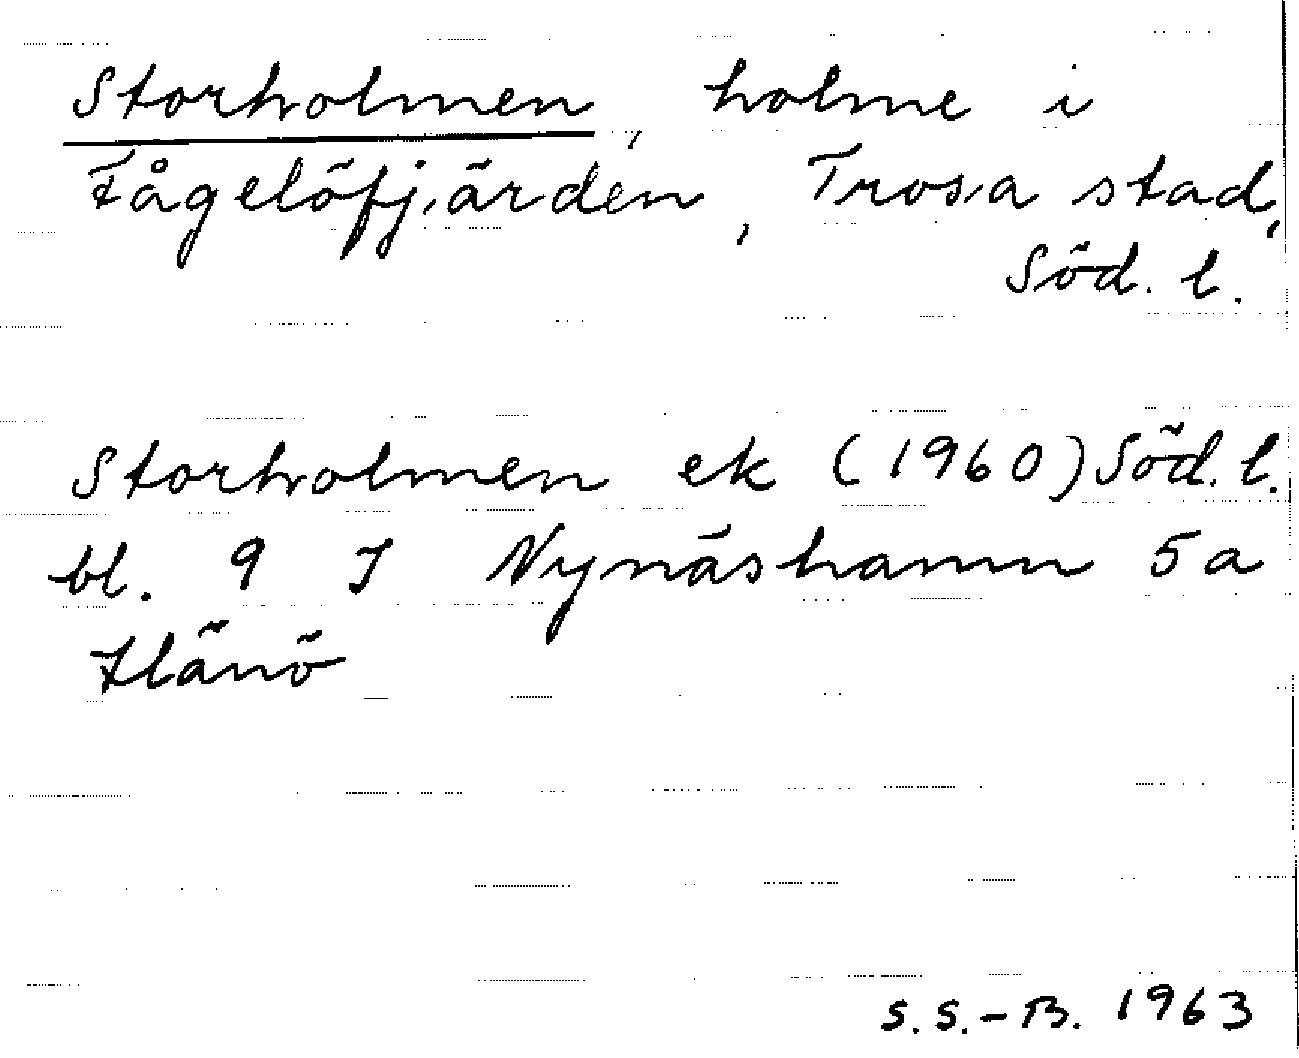 Storholmen, holme i
Fågelöfjärden, Trosa stad,
Söd. l.
Storholmen ek (1960) Söd. l.
bl. 9 I Nynäshamn 5a
Hänö
S.S.-B. 1963